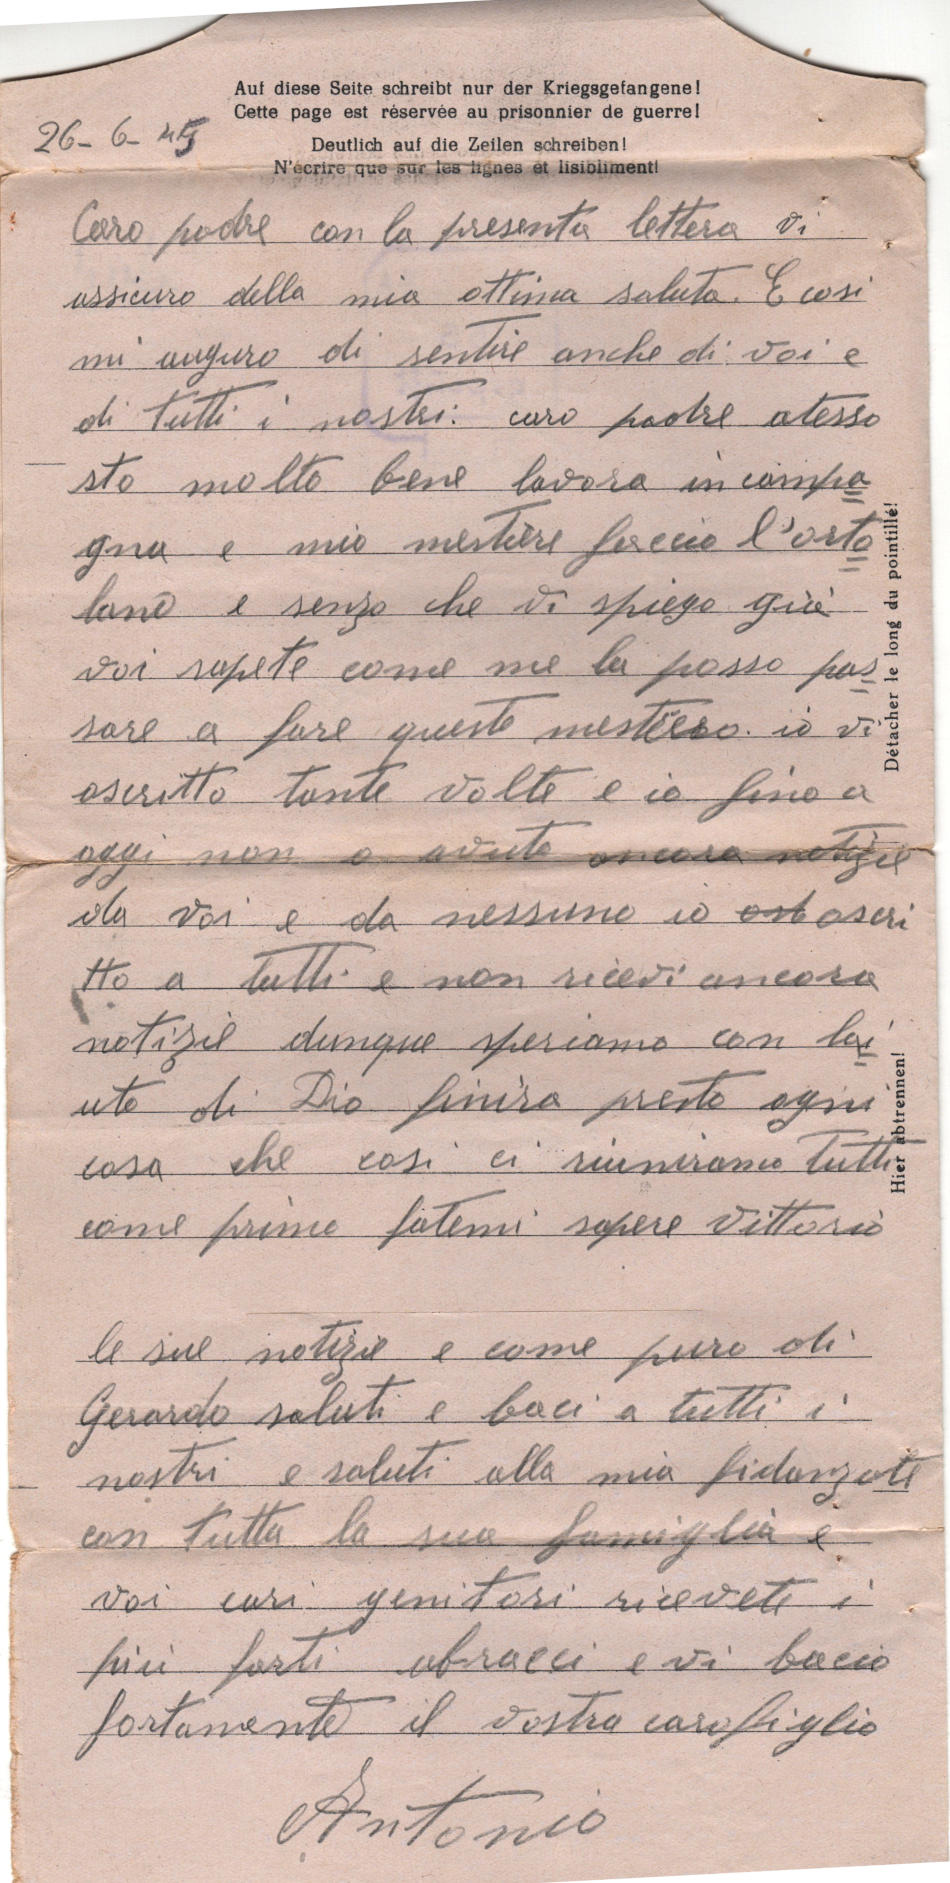 Auf diese Seite schreibt nur der Kriegsgefangene!
Cette page est réservée au prisonnier de guerre!
Deutlich auf die Zeilen schreiben!
N'écrire que sur les lignes et lisibliment!
26-6-45
Caro padre con la presenta lettera vi
assicuro della mia ottima saluta. E cosi
mi auguro di sentire anche di voi e
di tutti i nostri. caro padre atesso
sto molto bene lavora in campa
gna e mio mestiere faccio l'orto
lano e senza che vi spiego già
voi sapete come me la posso pas
sare a fare questo mestiero. io vi
oscritto tante volte e io fino a
oggi non o avuto ancora notizie
da voi e da nessuno io oscri
tto a tutti e non ricevi ancora
notizie dunque speriamo con lai
uto di Dio finira presto ogni
cosa che cosi ci riuniramo tutti
come prima fatemi sapere Vittorio
le sue notizie e come pure di
Gerardo saluti e baci a tutti i
nostri e saluti alla mia fidanzata
con tutta la sua famiglia e
voi cari genitori ricevete i
più forti abracci e vi bacio
fortamente il vostra caro figlio
Antonio
Détacher le long du pointillé!
Hier abtrennen!